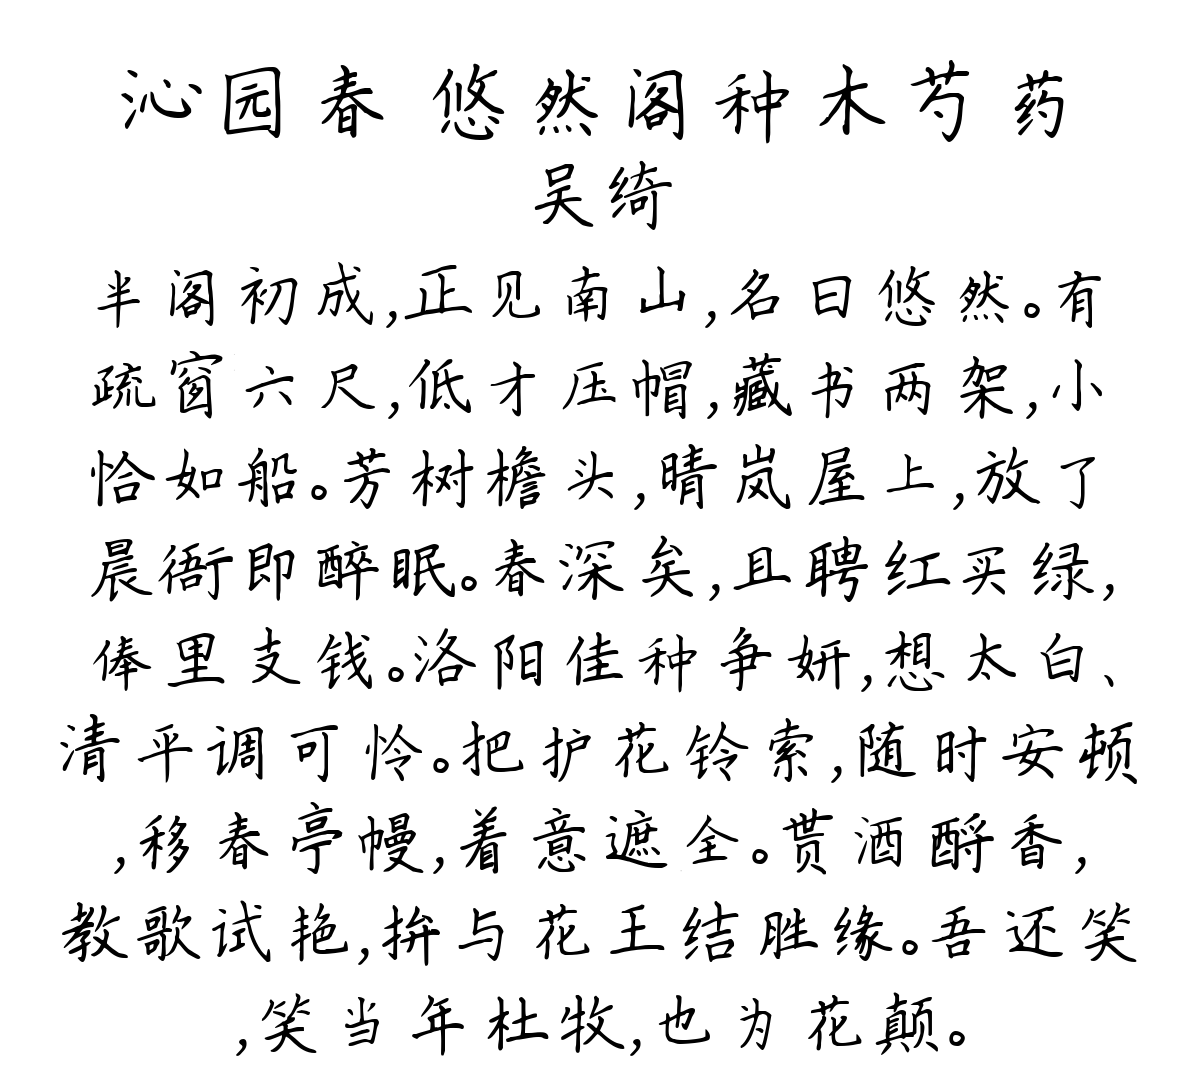 沁园春 悠然阁种木芍药
吴绮
半阁初成,正见南山,名曰悠然。有
疏窗六尺,低才压帽,藏书两架,小
恰如船。芳树檐头,晴岚屋上,放了
晨衙即醉眠。春深矣,且聘红买绿,
俸里支钱。洛阳佳种争妍,想太白、
清平调可怜。把护花铃索,随时安顿
,移春亭幔,着意遮全。贳酒酹香,
教歌试艳,拚与花王结胜缘。吾还笑
,笑当年杜牧,也为花颠。